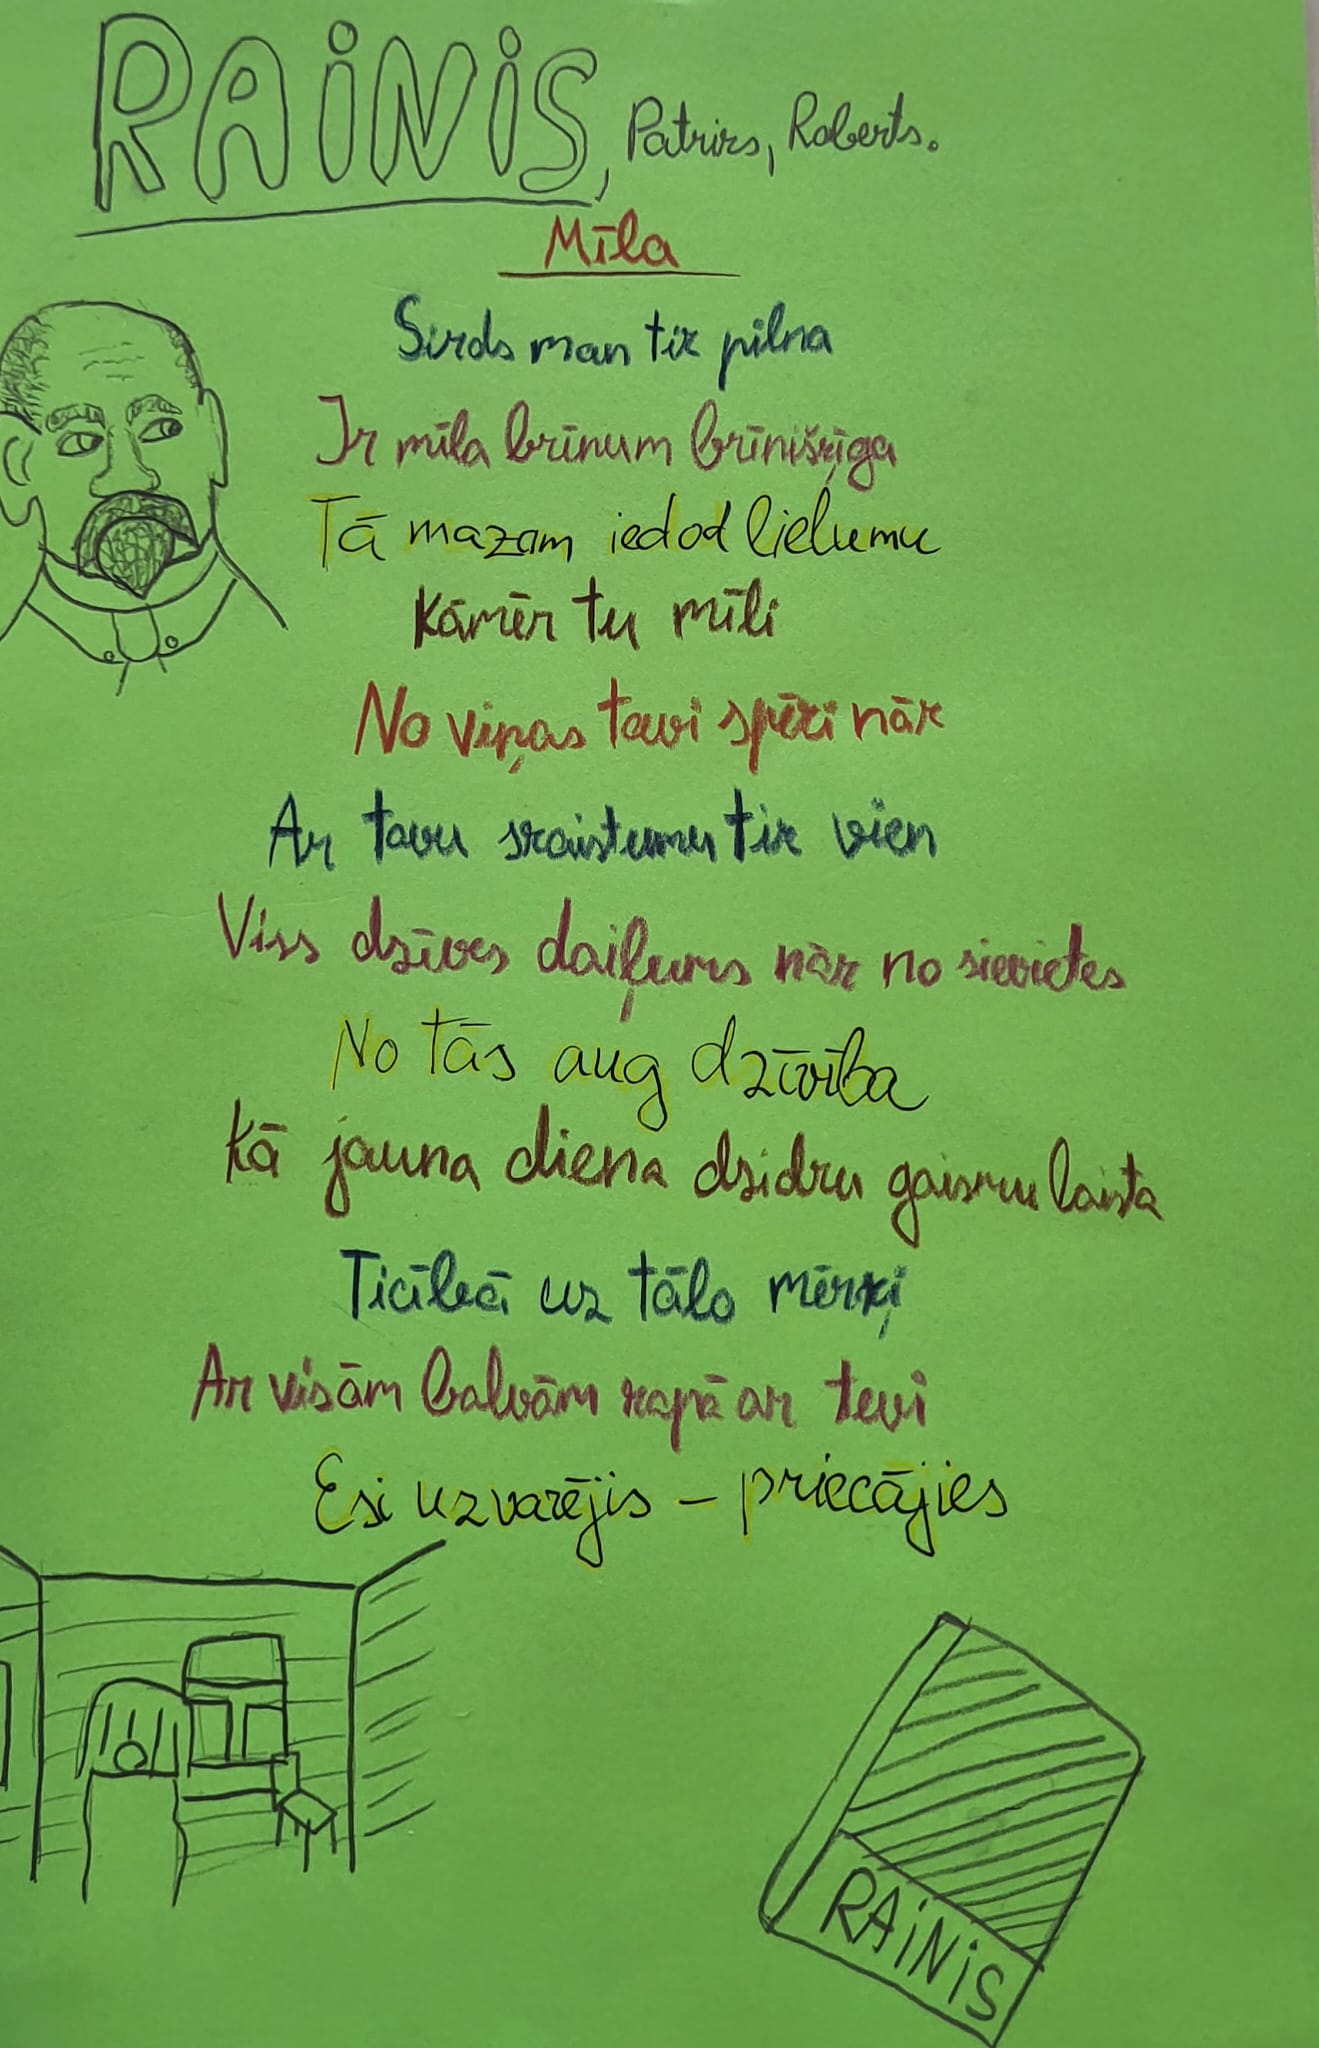 RAINIS, Patriks, Roberts.
Mīla
Sirds man tik pilna
Ir mīla brīnum brīnišķīga
Tā mazam iedod lielumu
Kāmēr tu mīli
No viņas tevi spēki nāk
Ar tavu skaistumu tik vien
Viss dzīves daiļums nāk no sievietes
No tās aug dzīvība
Kā jauna diena dzidru gaismu laista
Ticībā uz tālo mērķi
Ar visām balvām kapā ar tevi
Esi uzvarējis – priecājies
RAINIS